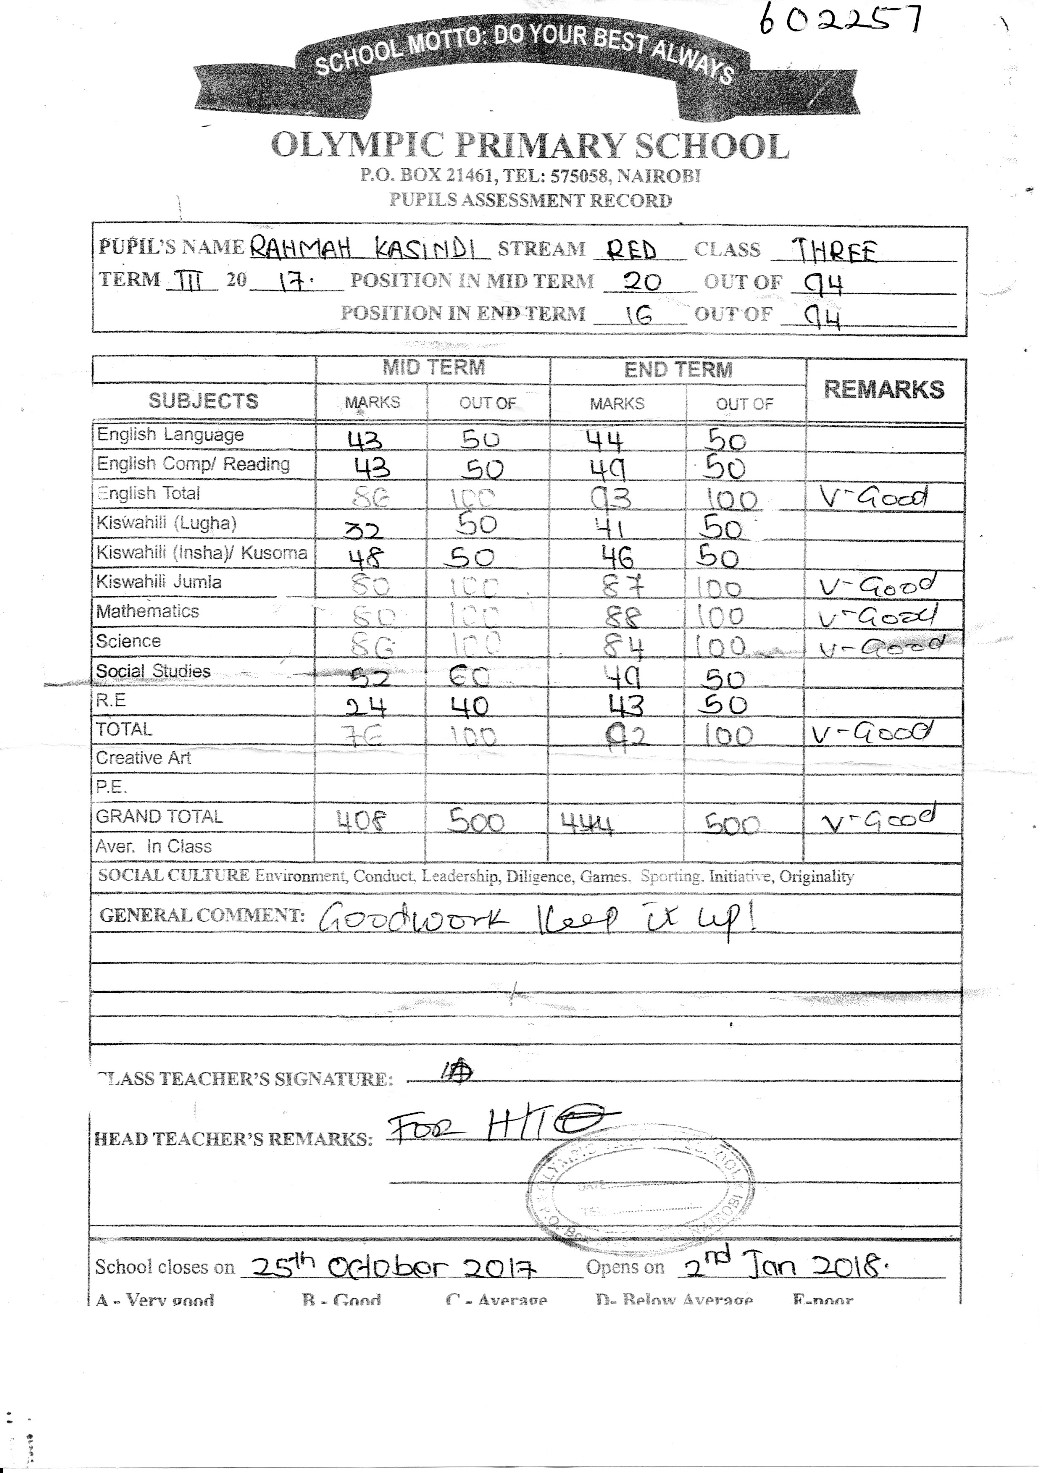 602257
SCHOOL MOTTO: DO YOUR BEST ALWAYS
OLYMPIC PRIMARY SCHOOL
P.O. BOX 21461, TEL: 575058, NAIROBI
PUPILS ASSESSMENT RECORD
PUPIL'S NAME RAHMAH KASINDI STREAM RED CLASS THREE
TERM III 20 17. POSITION IN MID TERM 20 OUT OF 94
POSITION IN END TERM 16 OUT OF 94
MID TERM END TERM REMARKS
SUBJECTS MARKS OUT OF MARKS OUT OF
English Language 43 50 44 50
English Comp/ Reading 43 50 49 50
English Total 86 100 93 100 V-Good
Kiswahili (Lugha) 32 50 41 50
Kiswahili (Insha)/ Kusoma 48 50 46 50
Kiswahili Jumla 80 100 87 100 V-Good
Mathematics 80 100 88 100 V-Good
Science 86 100 84 100 V-Good
Social Studies 52 60 49 50
R.E 24 40 43 50
TOTAL 76 100 92 100 V-Good
Creative Art
P.E.
GRAND TOTAL 408 500 444 500 V-Good
Aver. in Class
SOCIAL CULTURE Environment, Conduct, Leadership, Diligence, Games. Sporting. Initiative, Originality
GENERAL COMMENT: Goodwork Keep it up!
CLASS TEACHER'S SIGNATURE:
HEAD TEACHER'S REMARKS: FOR H/T
School closes on 25th October 2017 Opens on 2nd Jan 2018.
A - Very good B - Good C - Average D- Below Average E-poor